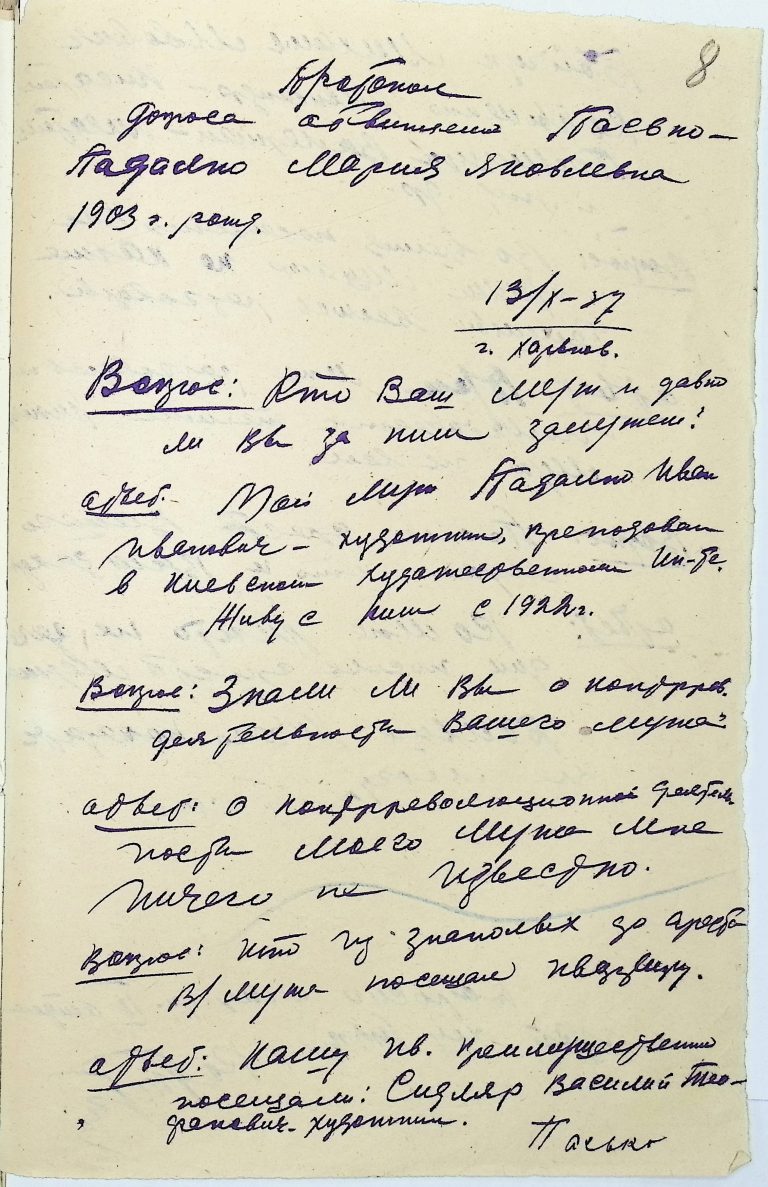 8
Протокол
допроса обвиняемой Паевно-
Падалко Мария Яковлевна
1903 г. рожд.
13/X-37
г. Харьков.
Вопрос: Кто Ваш муж и давно
ли Вы за ним замужем?
ответ. Мой муж Падалко Иван
Иванович – художник, преподавал
в Киевском художественном Ин-те.
Живу с ним с 1922 г.
Вопрос: Знали ли Вы о контррев.
деятельности Вашего мужа?
ответ: о контрреволюционной деятель-
ности моего мужа мне
ничего не известно.
Вопрос: Кто из знакомых до ареста
В/мужа посещал квартиру.
ответ: нашу кв. преимущественно
посещали: Седляр Василий Тео-
фанович – художник.